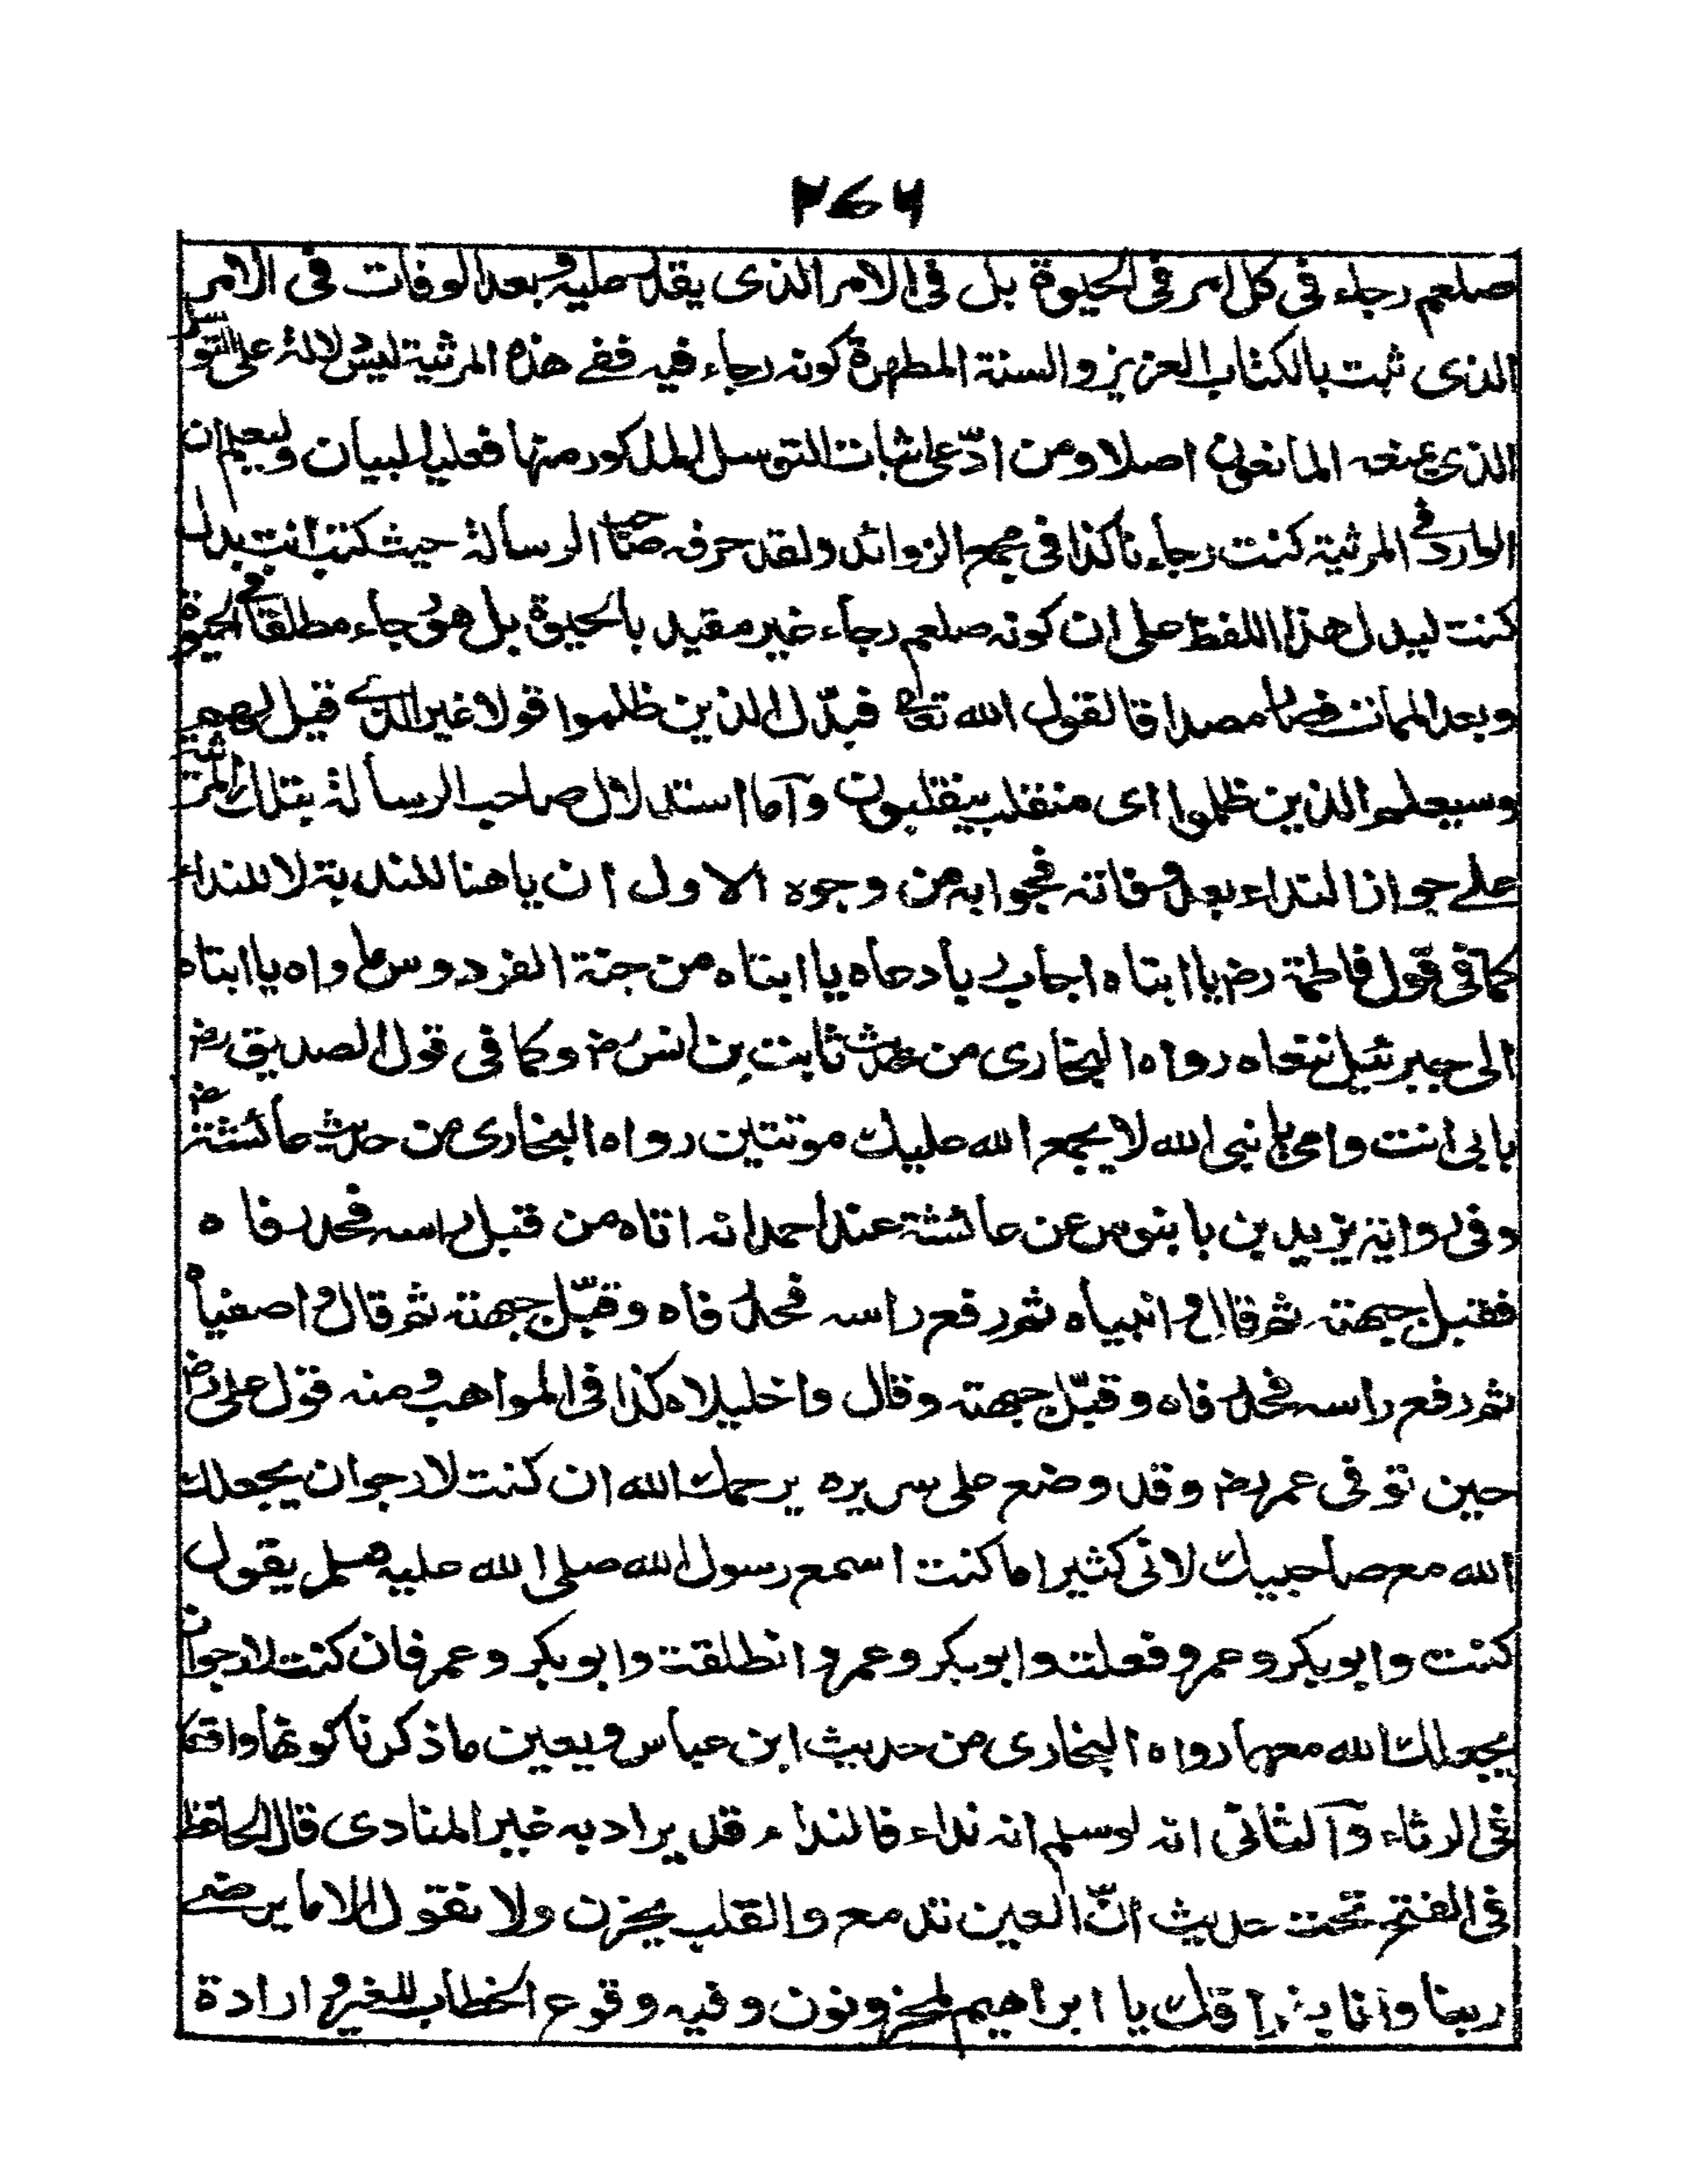 ٢٤٦
صلعم رجاء فى كل امر فى الحيوة بل فى الامر الذى يقدر عليه وبعد الوفات فى الامر
الذى ثبت بالكتاب العزيز والسنة المطهرة كونه رجاء فيه ففے هذه المرثية ليس دلالة على التوسل
الذى يمنعه المانعون اصلا ومن ادّعى اثبات التوسل المذكور منها فعليه البيان وليعلم ان
الوارد فى المرثية كنت رجاءنا كذا فى مجمع الزوائد ولقد حرفه صاحب الرسالة حيث كتب انت بدل
كنت ليدل هذا اللفظ على ان كونه صلعم رجاء غير مقيد بالحيوة بل هو رجاء مطلقا فى الحيوة
وبعد الممات فصار مصداقا لقول الله تعالى فبدّل الذين ظلموا قولا غير الذى قيل لهم
وسيعلم الذين ظلموا اى منقلب ينقلبون وآما استدلال صاحب الرسالة بتلك المرثية
علے جواز النداء بعد وفاته فجوابه من وجوه الاول ان يا هنا للندبة لا للنداء
كما فى قول فاطمة رض يا ابتاه اجاب ربا دعاه يا ابتاه من جنة الفردوس ماواه يا ابتاه
الى جبرئيل ننعاه رواه البخارى من حديث ثابت بن انس رض وكما فى قول الصديق رض
بابى انت وامى يا نبى الله لا يجمع الله عليك موتتين رواه البخارى من حديث عائشة رض
وفى رواية يزيد بن بابنوس عن عائشة عند احمد انه اتاه من قبل راسه فحدر فاه
فقبل جبهته ثم قال وانبياه ثم رفع راسه فحدر فاه وقبّل جبهته ثم قال واصفياه
ثم رفع راسه فحدر فاه وقبّل جبهته وقال واخليلاه كذا فى المواهب ومنه قول على رض
حين توفى عمر رض وقد وضع على سريره يرحمك الله ان كنت لارجو ان يجعلك
الله مع صاحبيك لانى كثيرا ما كنت اسمع رسول الله صلى الله عليه وسلم يقول
كنت وابو بكر وعمر وفعلت وابو بكر وعمر وانطلقت وابو بكر وعمر فان كنت لارجو ان
يجعلك الله معهما رواه البخارى من حديث ابن عباس ويعين ما ذكرنا كونها واقعة
فى الرثاء وآلثانى انه لو سلم انه نداء فالنداء قد يراد به غير المنادى قال الحافظ
فى الفتح تحت حديث انّ العين تدمع والقلب يحزن ولا نقول الا ما يرضے
ربنا وانا بفراقك يا ابراهيم لمحزونون وفيه وقوع الخطاب للغير وارادة